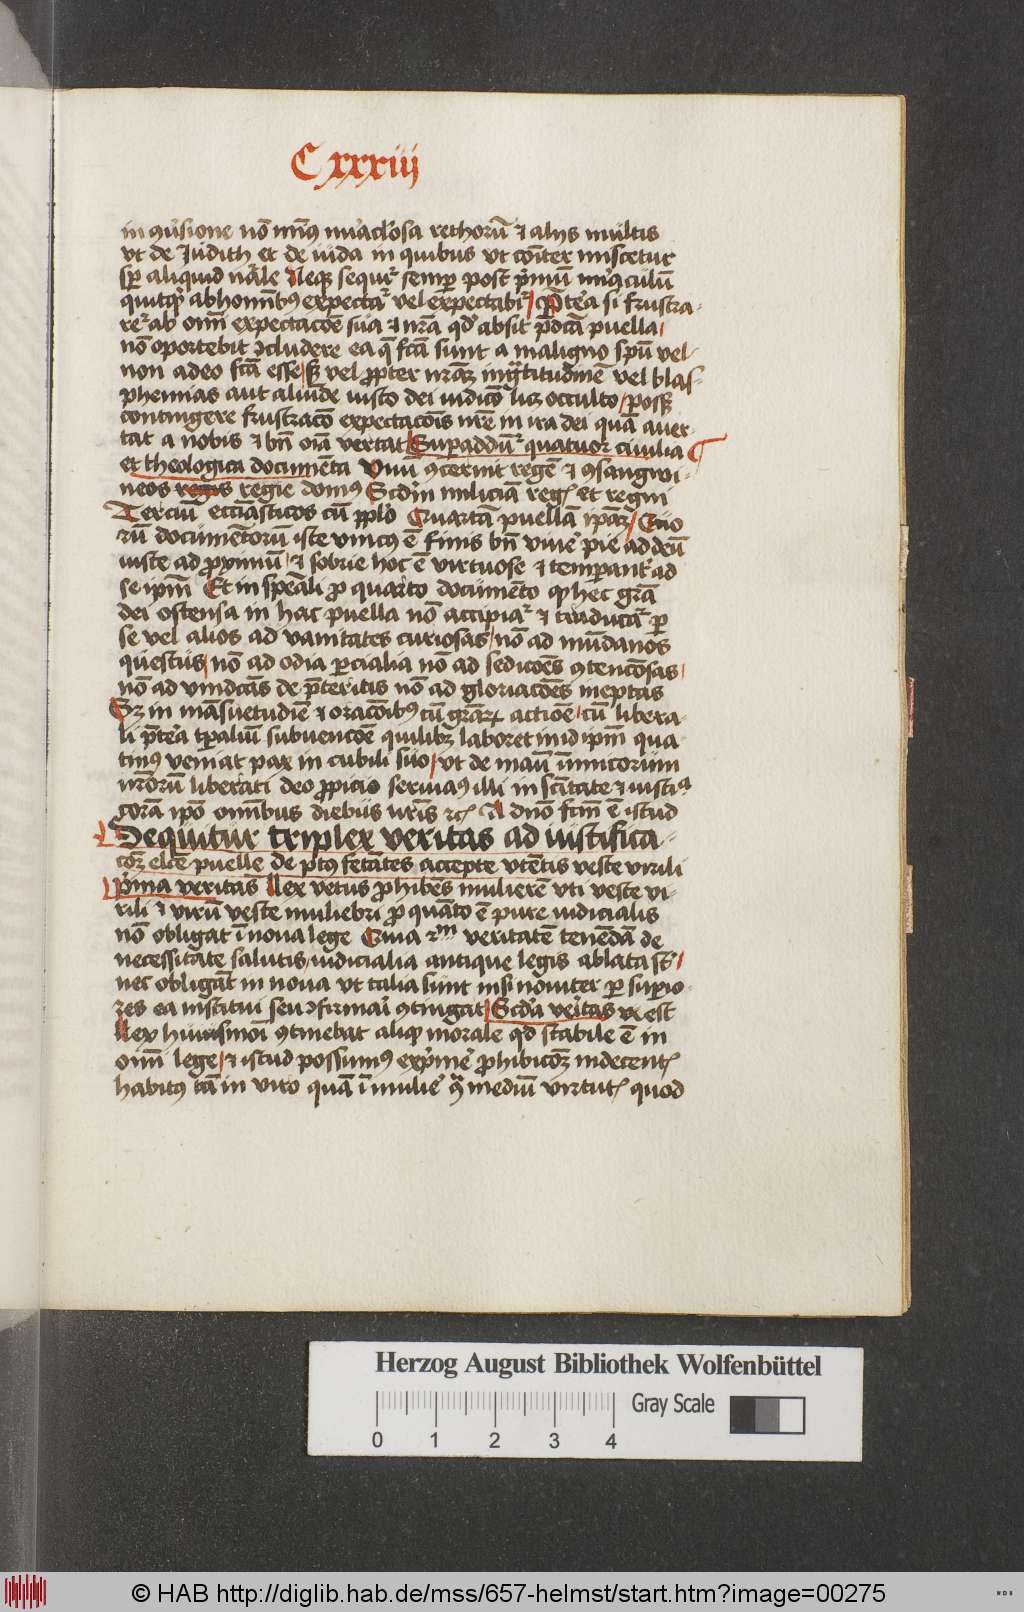 C xxxiii
in qͥsione nō minꝰ mirͣclosa rethorū ⁊ alijs multis
vt de Judith et de iuda in quibus vt cōiter miscetur
sꝑ aliquid nāle Neqꝫ sequit᷑ semꝑ post pͥmū mirͣculū
quitqͥd ab hominībꝰ expectat᷑ vel expectabit᷑ / Pret̾ea si frustra-
ret᷑ ab om̄i expectacōe sua ⁊ nr̄a qd̾ absit p̄dcā puella /
nō oportebit ꝯcludere ea q̄ fcā sunt a maligno spū vel-
non a deo fcā esse / sꝫ vel ꝓpter nr̄aꝫ ingͣtitudinē vel blas-
phemias aut aliunde iusto dei iudicō licꝫ occulto / possꝫ
contingere frustracō expectacōis nr̄e in ira dei quā auer-
tat a nobis ⁊ bn̄ oīa vertat Suꝑaddunt᷑ quatuor ciuilia
et theologica documēta Vnū ꝯcernit regē ⁊ ꝯsangwi-
neos regis regie domꝰ Scd̾m miliciā regꝭ et regni
Terciū eccīasticos cū ꝓplo Quartā puellā ipāꝫ / Quo
ꝛū documētorū iste vnicꝰ ē finis bn̄ viu̾e pie ad deū
iuste ad proximū / ⁊ sobrie hoc ē virtuose ⁊ temꝑant̾ ad
se ipm̄ Et in speāli ꝓ quarto documēto ꝙ hec grā
dei ostensa in hac puella nō accipiat᷑ ⁊ traducat᷑ ꝑ
se vel alios ad vanitates curiosas / nō ad mūdanos
questus / nō ad odia ꝑcialia nō ad sediciōēs ꝯtencōsas /
nō ad vindcās de p̄teritis nō ad gloriacōēs ineptas
Sꝫ in māsuetudīe ⁊ oracōībꝰ cū grāꝝ actiōe / cū libera-
li p̄t̾ea tꝑaliū subuencōe quilibꝫ laboret in id ipm̄ qua
tinꝰ veniat pax in cubili suo / vt de manū inimicorum
nr̄orū liberati deo ꝓpicio seruiaꝰ illi in scītate ⁊ iusticͣ
corā ipō omībus diebus nr̄is ⁊cꝭ A dnō fcm̄ ē istud
Sequitur triplex veritas ad iustifica-
cōꝫ elcē puelle de ptꝰ fetātes accepte vtētis veste virili
pͥma veritas Lex vetus ꝓhibēs mulierē vti veste vi-
rili ⁊ virū veste muliebri ꝓ quāto ē pure iudicialis
nō obligat ī noua lege Quia ⁊m veritatē tenēdā de
necessitate salutis / iudicialia antique legis ablata st̄ /
nec obligāt in noua vt talia sunt nisi nouiter ꝑ suꝑio-
res ea institui seu ꝯfirmari ꝯtingat / Scd̾a veritas ē est
Lex huiusmoi ꝯtinebat aliqͥ morale qd̾ stabile ē in
om̄i lege / ⁊ istud possumꝰ exp͛me̾ ꝓhibicōꝫ indecentꝭ
habitꝰ tā in viro quā ī mulie̾ ꝯͣ mediū virtutꝭ quod
Herzog August Bibliothek Wolfenbüttel
0 1 2 3 4
Gray Scale
© HAB http://diglib.hab.de/mss/657-helmst/start.htm?image=00275